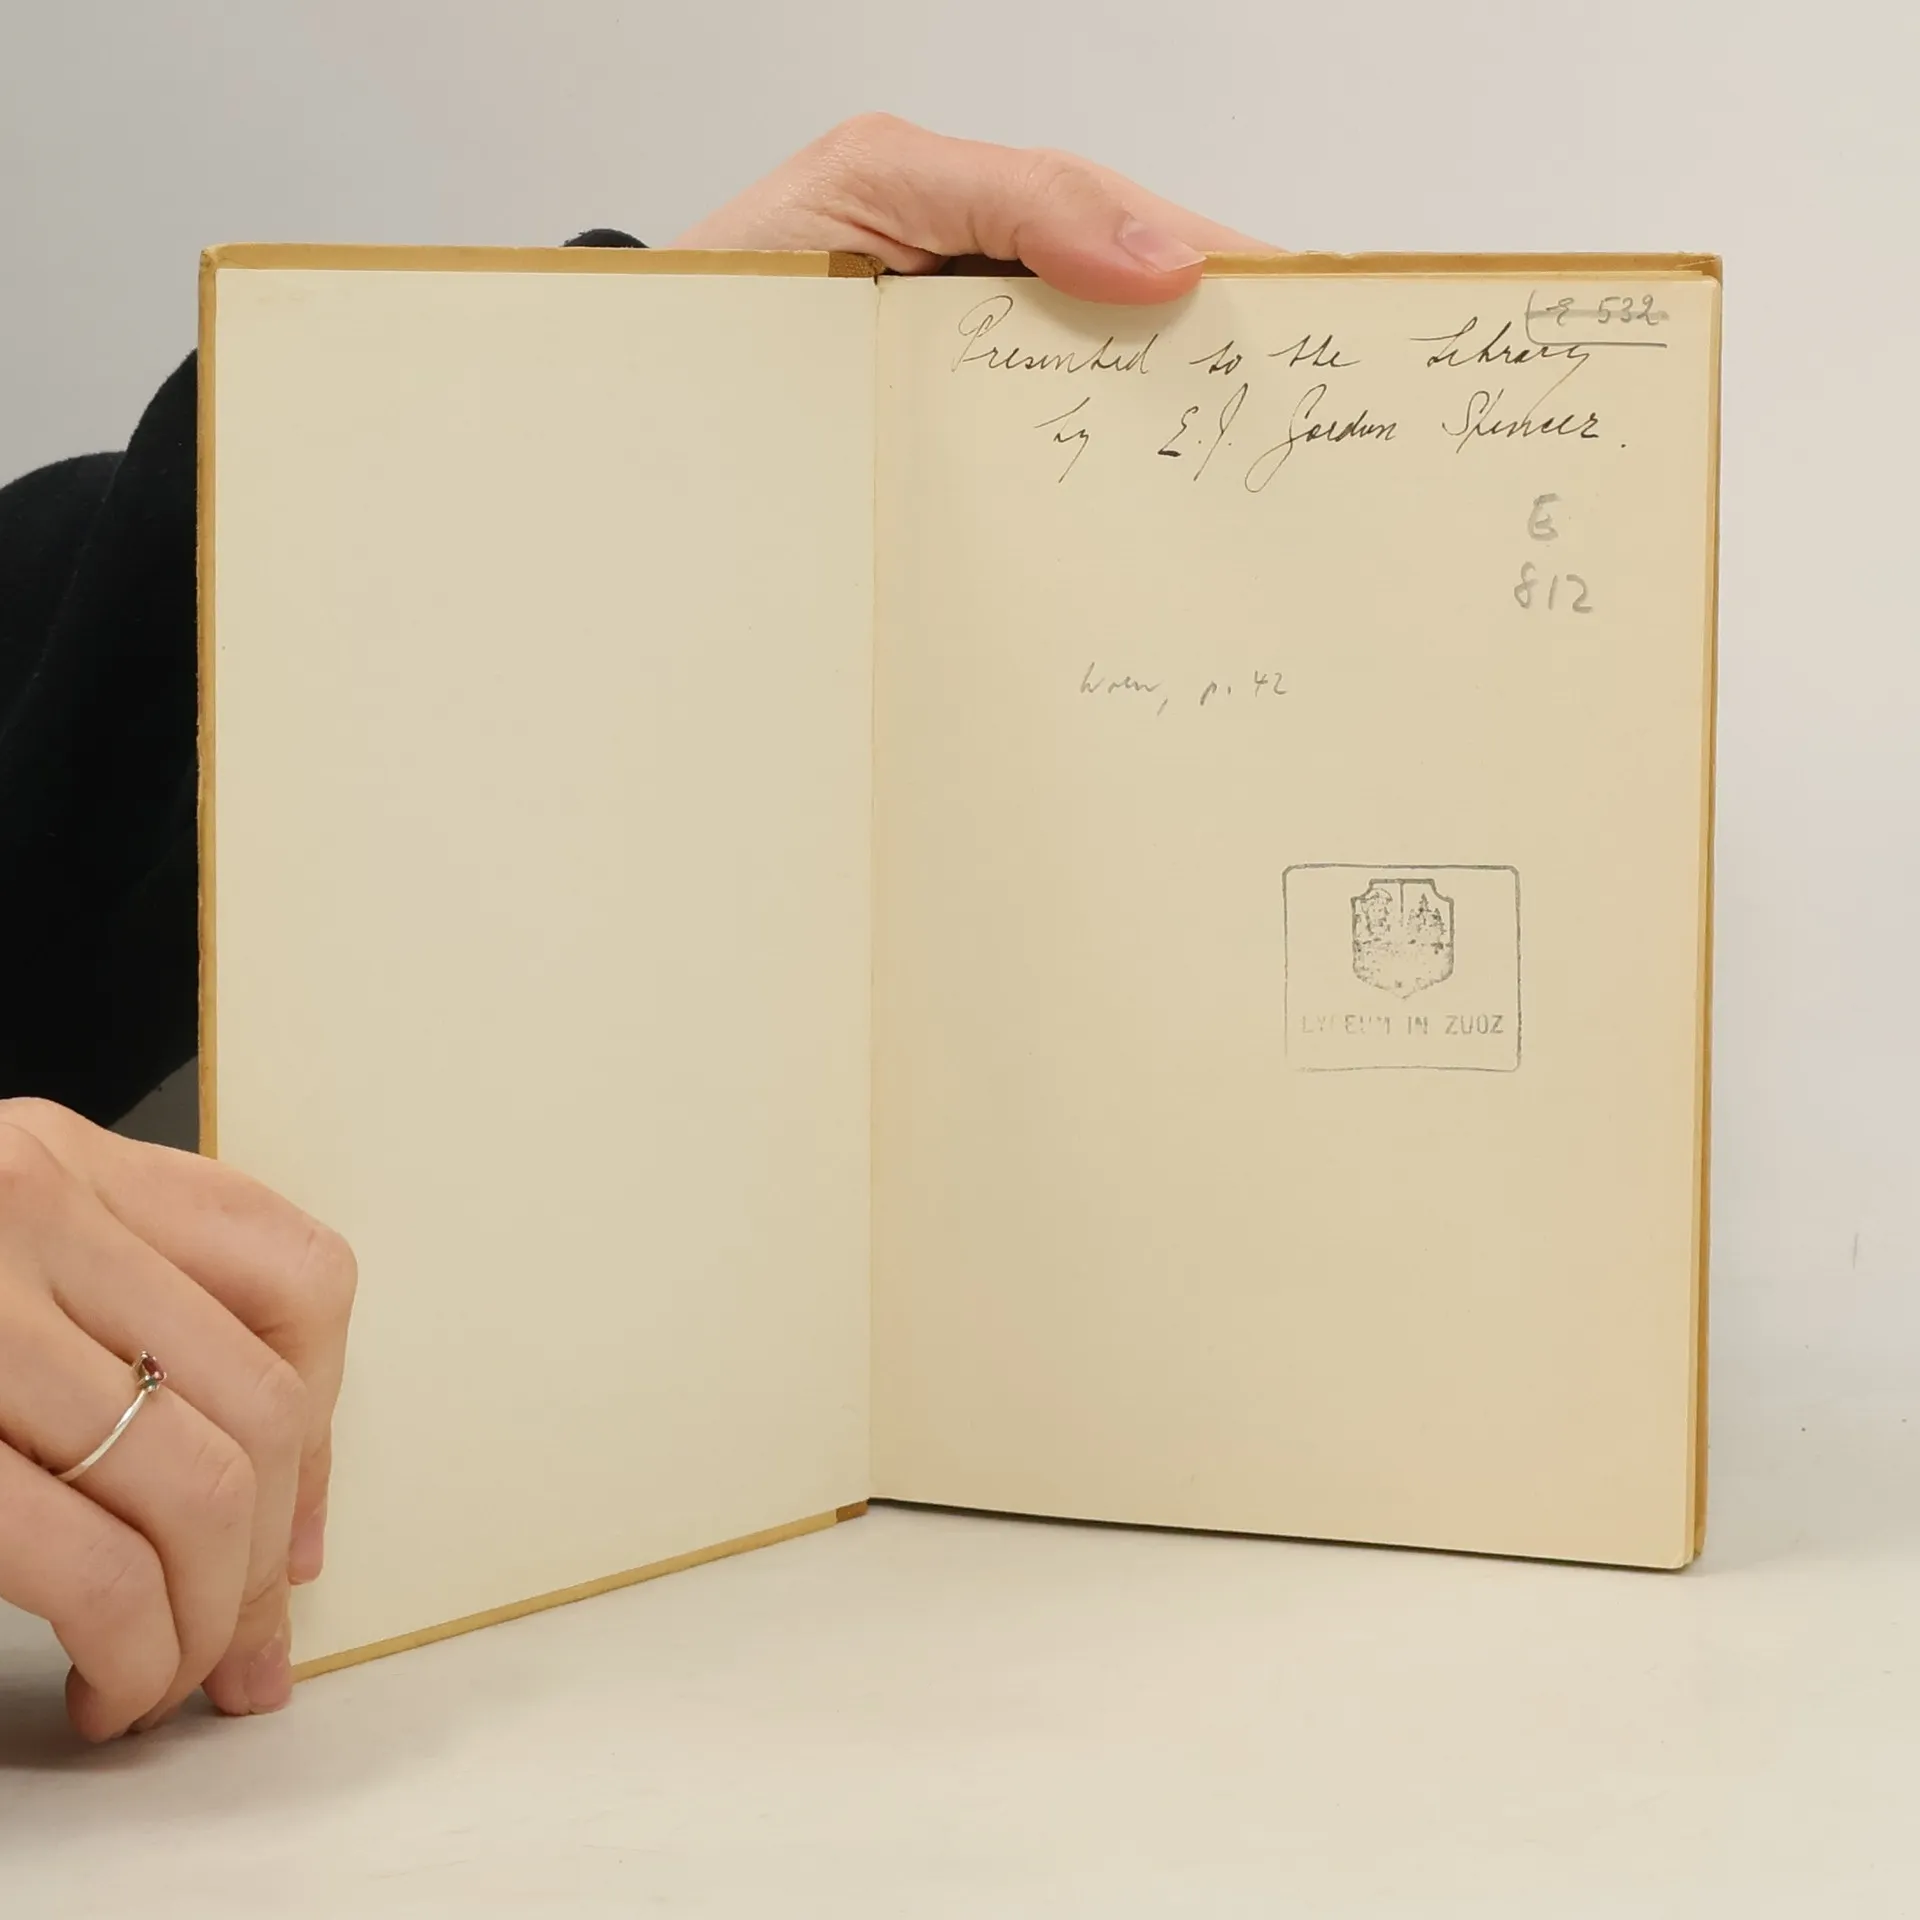 E 532
Presented to the Library
by E. J. Gordon Spencer.
E
812
p. 42
LYCEUM IN ZUOZ